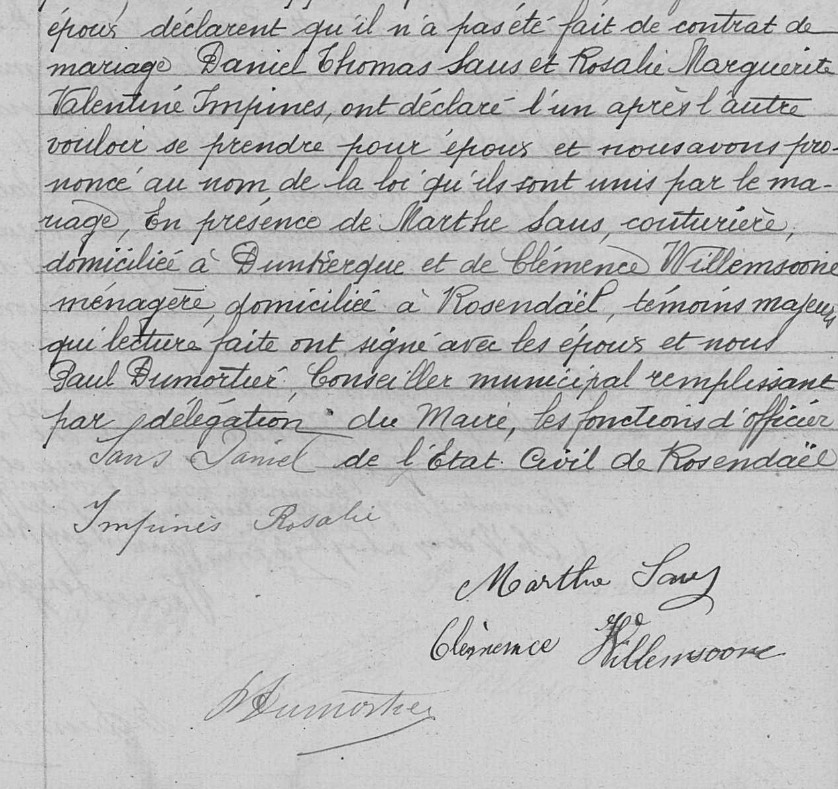 époux déclarent qu'il n'a pas été fait de contrat de
mariage Daniel Thomas Saus et Rosalie Marguerite
Valentine Impines, ont déclaré l'un après l'autre
vouloir se prendre pour époux et nous avons pro-
noncé au nom de la loi qu'ils sont unis par le ma-
riage, En présence de Marthe Saus, couturière,
domiciliée à Dunkerque et de Clémence Willemsoone
ménagère, domiciliée à Rosendaël, témoins majeurs
qui lecture faite ont signé avec les époux et nous
Paul Dumortier, Conseiller municipal remplissant
par délégation du Maire, les fonctions d'officier
Saus Daniel de l'État Civil de Rosendaël
Impines Rosalie
Marthe Saus
Clémence Willemsoone
P Dumortier